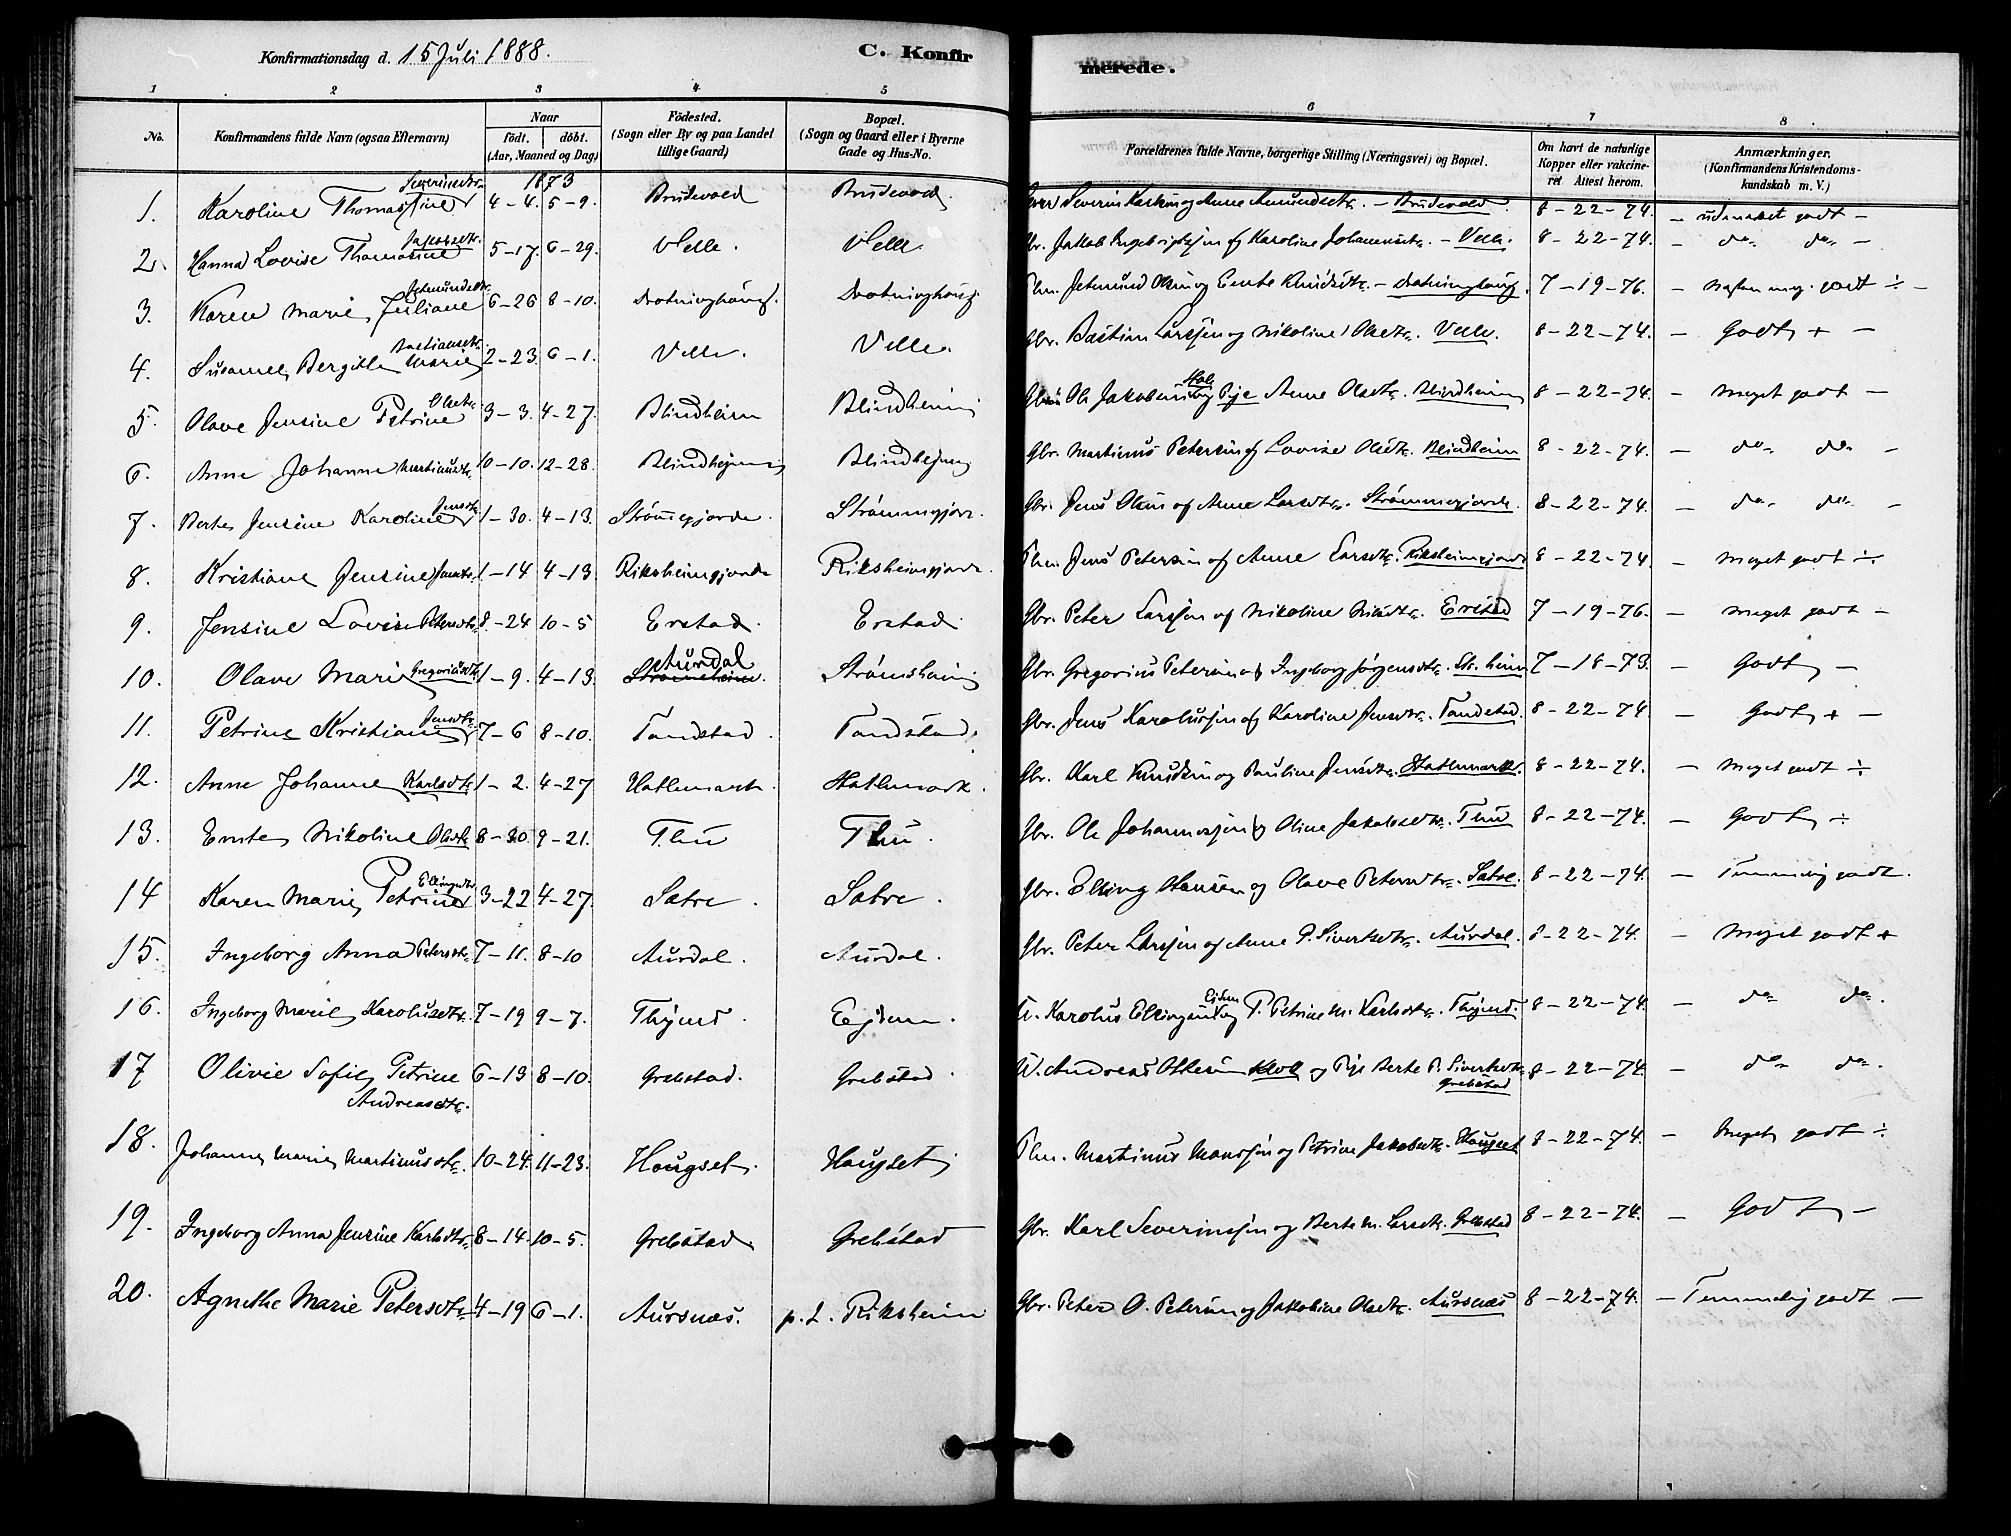 Konfirmationsdag d. 15 Juli 1888.
C. Konfirmerede.
1 2 3 4 5 6 7 8
No. Konfirmandens fulde Navn (ogsaa Efternavn) Naar født. døbt. (Aar, Maaned og Dag) Fødested. (Sogn eller By og paa Landet tillige Gaard) Bopæl. (Sogn og Gaard eller i Byerne Gade og Hus-No. Forældrenes fulde Navne, borgerlige Stilling (Næringsvei) og Bopæl. Om havt de naturlige Kopper eller vakcineret Attest herom. Anmærkninger. (Konfirmandens Kristendomskundskab m. V.)
1873
1. Karoline Thomasine Severinsdtr. 4-4. 5-9. Brudevold Brudevold. Severin Karlsen og Anne Amundsdtr. - Brudevold. 8-22-74. - udmærket godt -
2. Hanna Lovise Thomasine Jakobsdtr. 5-17. 6-29. Velle. Velle. Gbr. Jakob Ingebrigtsen og Karoline Johannesdtr. - Velle. 8-22-74. - do do -
3. Karen Marie Juliane Jetmundsdtr. 6-26 8-10. Drotninghaug. Drotninghaug. Plm. Jetmund Olsen og Ernte Knudsdtr. - Drotninghaug. 7-19-76. - næsten meg. godt ÷ -
4. Susanne Bergitte Marie Bastiansdtr. 2-23. 6-1. Velle. Velle. Gbr. Bastian Larssen og Nikoline Olsdtr. Velle. 8-22-74. - Godt + -
5. Olave Jensine Petrine Olsdtr. 3-3. 4-27. Blindheim Blindheim Ole Jakobsen og Pije Anne Olsdtr. Blindheim 8-22-74. - meget godt -
6. Anne Johanne Martinusdtr. 10-10. 12-28. Blindhejm Blindhejm Gbr. Martinus Petersen og Lovise Olsdtr. Blindheim 8-22-74. - do do -
7. Berte Jensine Karoline Jensdtr. 1-30. 4-13. Strømegjerde. Strømmegjerde. Gbr. Jens Olsen og Anne Larsdtr. Strømmegjerde. 8-22-74. - do do -
8. Kristiane Jensine Jensdtr. 1-14 4-13 Riksheimgjerde Riksheimgjerde. Plm. Jens Petersen og Anne Larsdtr. Riksheimgjerde 8-22-74 - meget godt ÷
9. Jensine Lovise Petersdtr. 8-24 10-5 Erstad. Erstad. Gbr. Peter Larssen og Nikoline Nilsdtr. Erstad 7-19-76. - meget godt -
10. Olave Marie Gregoriusdtr. 1-9. 4-13. Aurdal Strømsheim. Strømsheim Gbr. Gregorius Petersen og Ingeborg Jørgensdtr. Str.heim 7-18-73. - Godt -
11. Petrine Kristiane Jensdtr. 7-6 8-10. Tandstad. Tandstad. Gbr. Jens Karolussen og Karoline Jensdtr. Tandstad. 8-22-74. - Godt + -
12. Anne Johanne Karlsdtr. 1-2. 4-27. Hatlemark. Hatlemark. Gbr. Karl Knudsen og Pauline Jensdtr. Hatlemark. 8-22-74. - meget godt ÷
13. Ernte Nikoline Olsdtr. 8-30. 9-21. Thu Thu. Gbr. Ole Johannessen og Oline Jakobsdtr. Thu 8-22-74. - Godt ÷
14 Karen Marie Petrine Ellingsdtr. 3-22 4-27. Sætre. Sætre. Gbr. Elling Hansen og Olave Petersdtr. Sætre. 8-22-74. - Temmelig godt.
15. Ingeborg Anna Petersdtr. 7-11. 8-10 Aurdal. Aurdal. Gbr. Peter Larssen og Anne P. Sivertsdtr. Aurdal. 8-22-74. - Meget godt +
16. Ingeborg Marie Karolusdtr. 7-19 9-7. Thynes. Ejdem. U. Karolus Ellingsen Eidem og P. Petrine M. Karlsdtr. Thynes. 8-22-74. - do do.
17 Olivie Sofie Petrine Andreasdtr. 6-19 8-10. Grebstad. Grebstad. U. Andreas Ottesen og Pije Berte P. Sivertsdtr. Grebstad 8-22-74. - do do.
18. Johanne Marie Martinusdtr. 10-24. 11-23. Hougset. Hougset Plm. Martinus Monssen og Petrine Jakobsdtr. Hougset 8-22-74. - Meget godt ÷
19. Ingeborg Anna Jensine Karlsdtr. 8-14. 10-5. Grebstad. Grebstad Gbr. Karl Severinssen og Berte M. Larsdtr. Grebstad 8-22-74. - Godt -
20. Agnethe Marie Petersdtr. 4-19 6-1. Aursnæs. p. t. Riksheim Gbr. Peter O. Petersen og Jakobine Olsdtr. Aursnæs 8-22-74. - Temmelig godt -